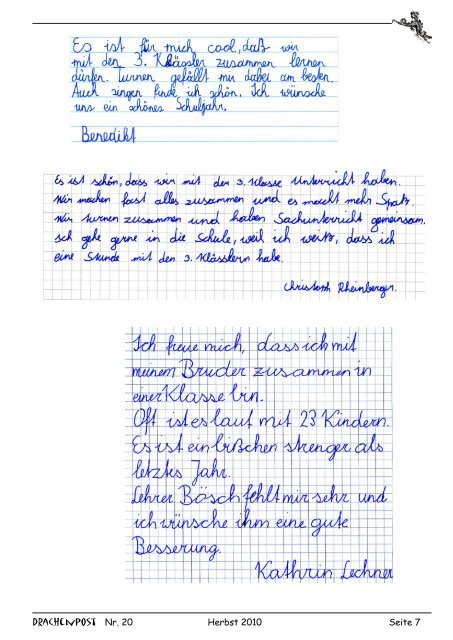 Es ist für mich cool, daß wir
mit den 3. Klässler zusammen lernen
dürfen. Turnen gefällt mir dabei am besten.
Auch singen finde ich schön. Ich wünsche
uns ein schönes Schuljahr.
Benedikt
Es ist schön, dass wir mit der 3. Klasse Unterricht haben.
Wir machen fast alles zusammen und es macht mehr Spatz.
Wir turnen zusammen und haben Sachunterricht gemeinsam.
Ich gehe gerne in die Schule, weil ich weitz, dass ich
eine Stunde mit den 3. Klässlern habe.
Christoph Rheinberger.
Ich freue mich, dass ich mit
meinem Bruder zusammen in
einer Klasse bin.
Oft ist es laut mit 23 Kindern.
Es ist ein bißchen strenger als
letztes Jahr.
Lehrer Bösch fehlt mir sehr und
ich wünsche ihm eine gute
Besserung.
Kathrin Lechner
DRACHENPOST Nr. 20 Herbst 2010 Seite 7